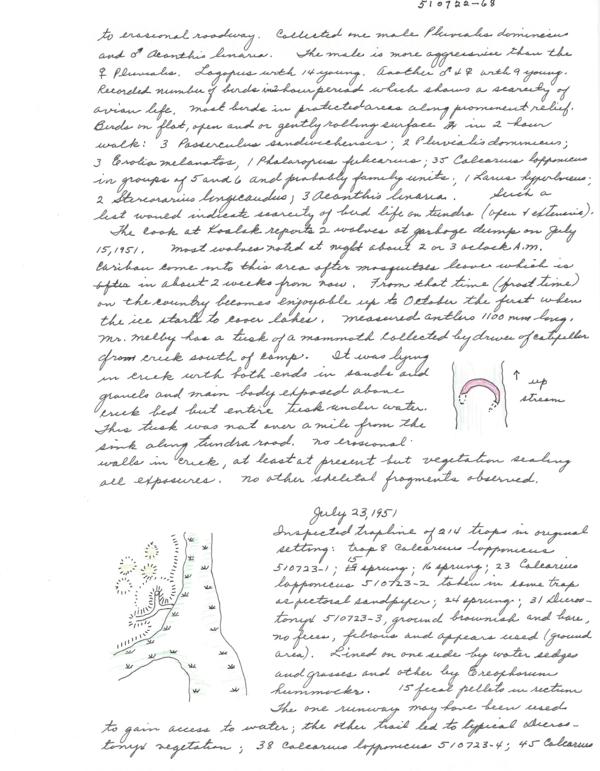 510722-68
to erosional roadway. Collected one male Pluvialis dominicus
and ♂ Acanthis linaria. The male is more aggressive than the
♀ Pluvialis. Lagopus with 14 young. Another ♂ & ♀ with 9 young.
Recorded number of birds in 2 hour period which shows a scarcity of
avian life. Most birds in protected areas along prominent relief.
Birds on flat, open and or gently rolling surface in 2-hour
walk: 3 Passerculus sandwichensis; 2 Pluvialis dominicus;
3 Erolia melanotos, 1 Phalaropus fulicarius; 35 Calcarius lapponicus
in groups of 5 and 6 and probably family units; 1 Larus hyperboreus;
2 Stercorarius longicaudus; 3 Acanthis linaria. Such a
list would indicate scarcity of bird life on tundra (open & extensive).
The cook at Koalak reports 2 wolves at garbage dump on July
15, 1951. Most wolves noted at night about 2 or 3 oclock A.M.
Caribou come into this area after mosquitoes leave which is
in about 2 weeks from now. From that time (frost time)
on the country becomes enjoyable up to October the first when
the ice starts to cover lakes. Measured antlers 1100 mm long.
Mr. Melby has a tusk of a mammoth collected by driver of catepeller
from crick south of camp. It was lying
in crick with both ends in sands and
gravels and main body exposed above
crick bed but entire tusk under water.
This tusk was not over a mile from the
sink along tundra road. No erosional
walls in crick, at least at present but vegetation sealing
all exposures. No other skeletal fragments observed.
↑ up
stream
July 23, 1951
Inspected trapline of 214 traps in original
setting: trap 8 Calcarius lapponicus
510723-1; 15 sprung; 16 sprung; 23 Calcarius
lapponicus 510723-2 taken in same trap
as pectoral sandpiper; 24 sprung; 31 Dicros-
tonyx 510723-3, ground brownish and bare,
no feces, fibrous and appears used (ground
area). Lined on one side by water sedges
and grasses and other by Ereophorum
hummocks. 15 fecal pellets in rectum
The one runway may have been used
to gain access to water; the other trail led to typical Dicros-
tonyx vegetation; 38 Calcarius lapponicus 510723-4; 45 Calcarius